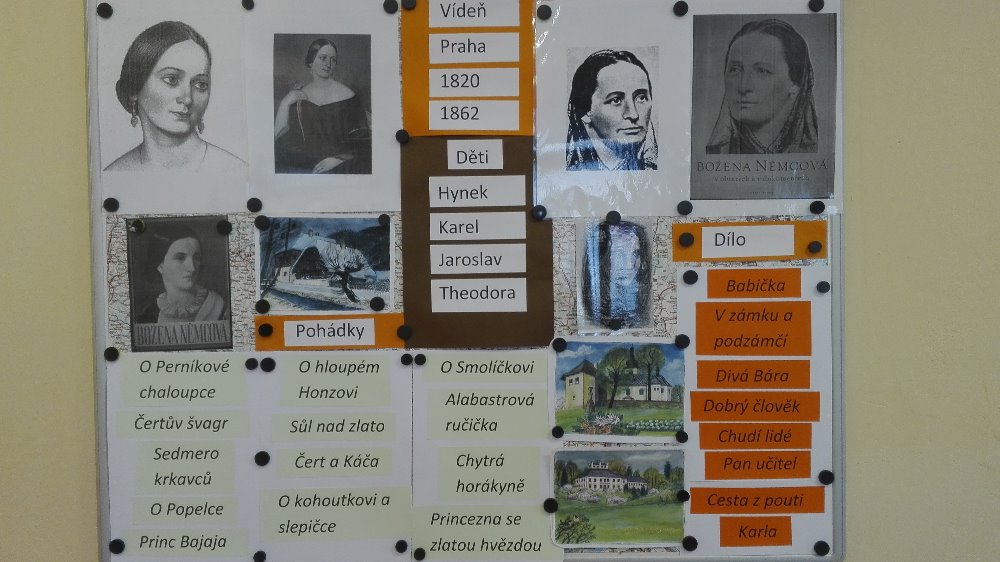 Vídeň
Praha
1820
1862
Děti
Hynek
Karel
Jaroslav
Theodora
BOŽENA NĚMCOVÁ
v obrazech a v dokumentech
BOŽENA NĚMCOVÁ
Pohádky
O Perníkové
chaloupce
Čertův švagr
Sedmero
krkavců
O Popelce
Princ Bajaja
O hloupém
Honzovi
Sůl nad zlato
Čert a Káča
O kohoutkovi a
slepičce
O Smolíčkovi
Alabastrová
ručička
Chytrá
horákyně
Princezna se
zlatou hvězdou
Dílo
Babička
V zámku a
podzámčí
Divá Bára
Dobrý člověk
Chudí lidé
Pan učitel
Cesta z pouti
Karla